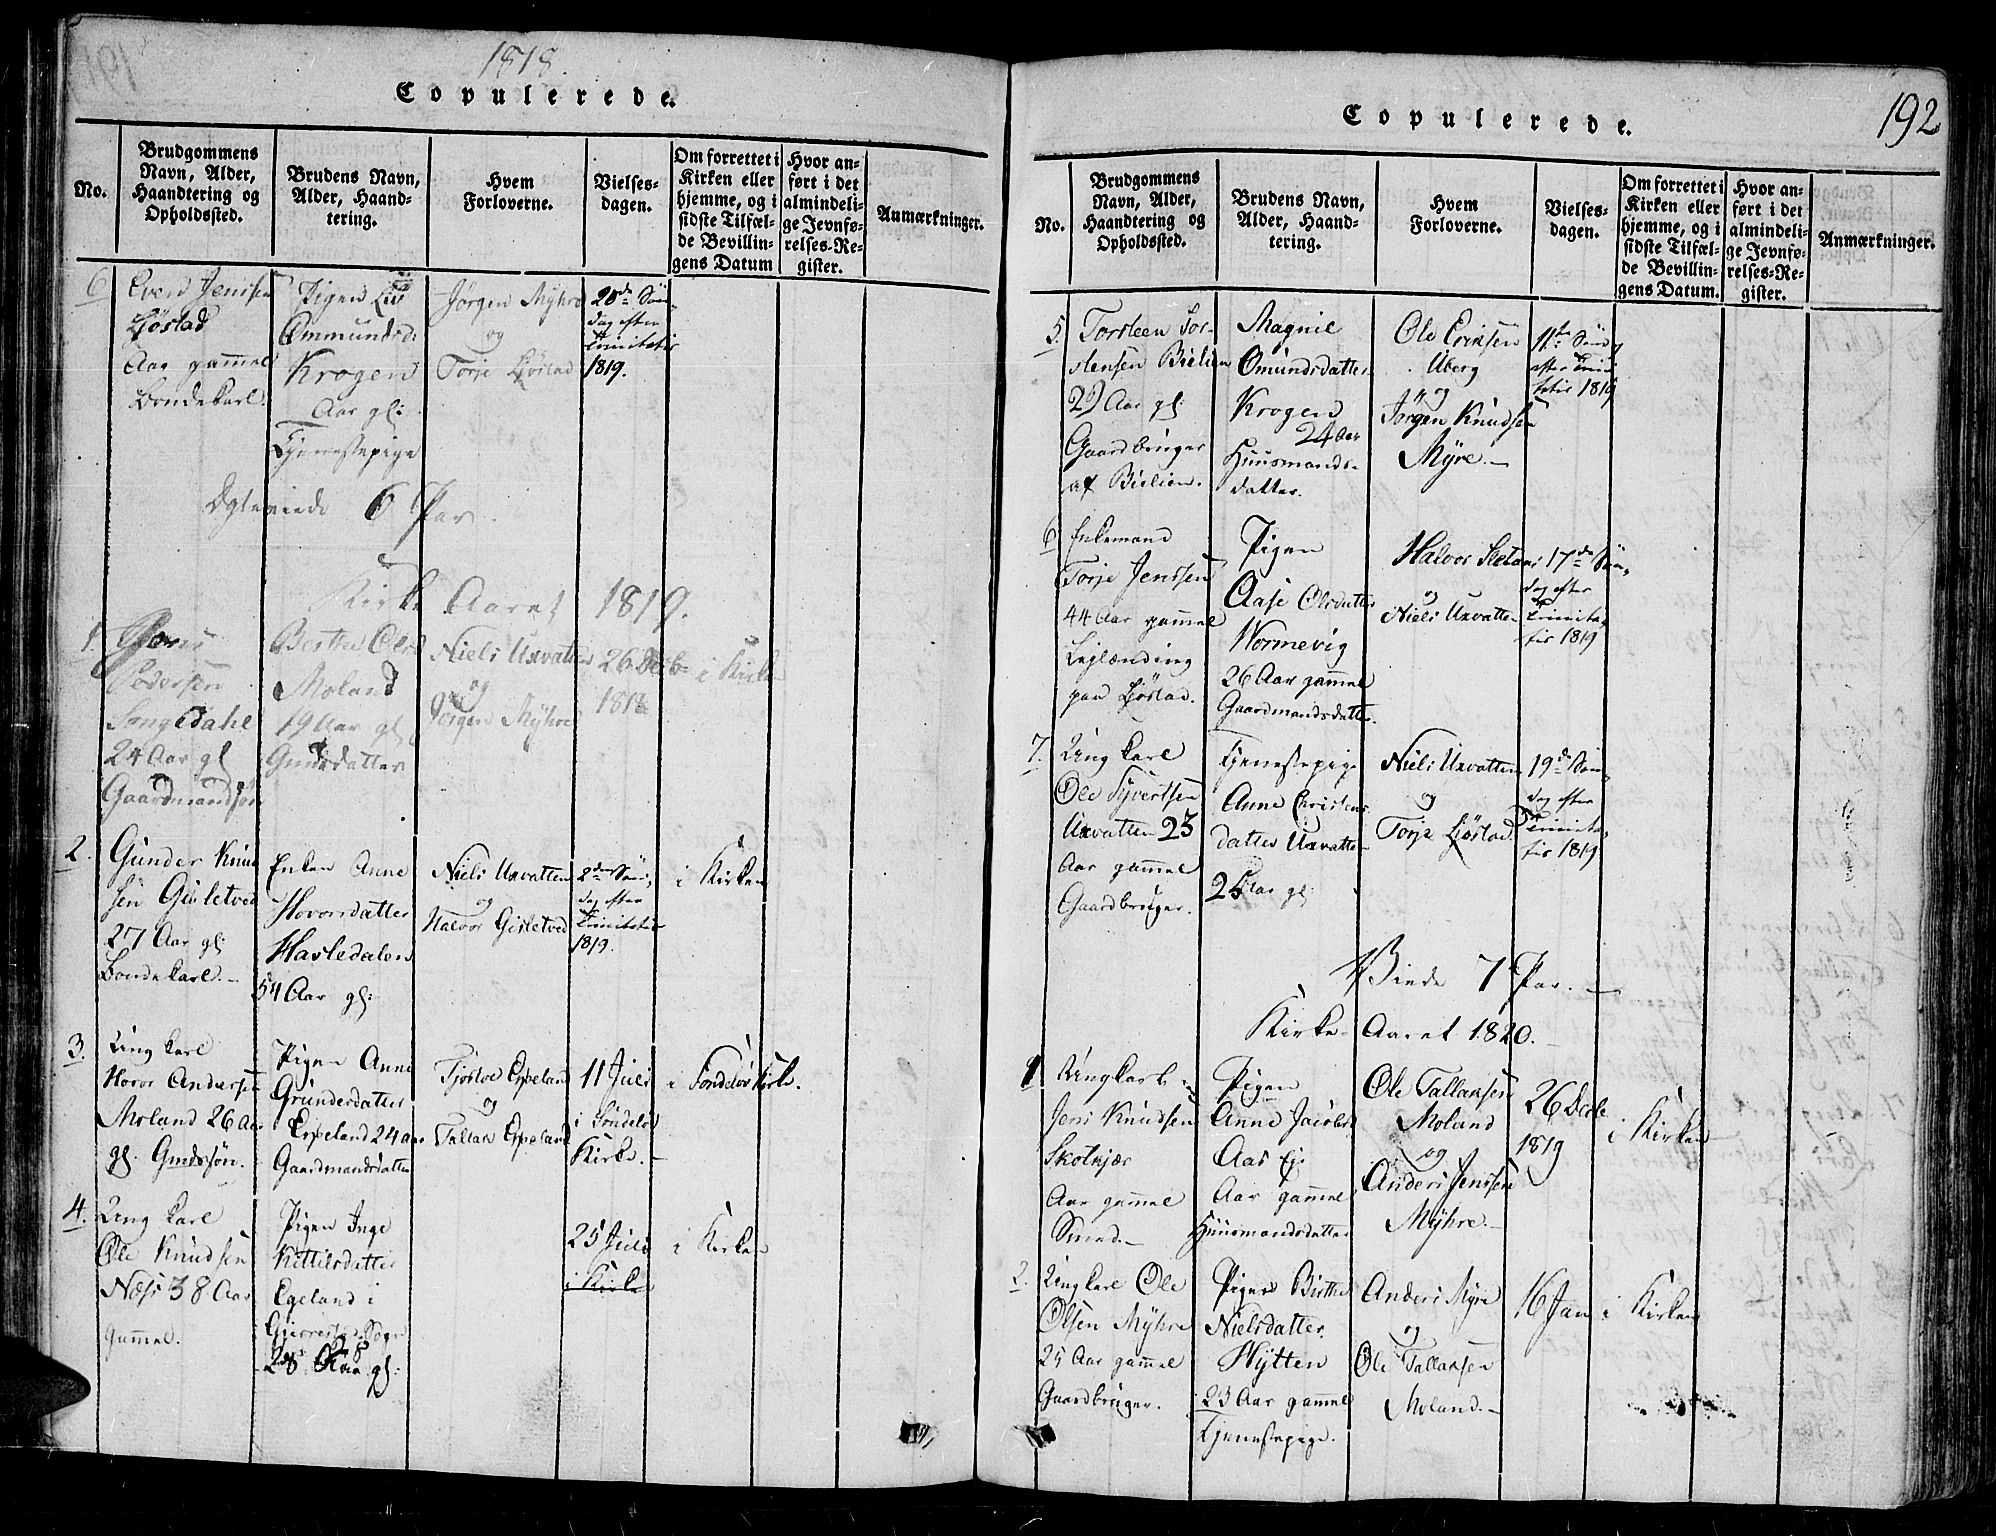 1818.
Copulerede.
No.
Brudgommens
Navn, Alder,
Haandtering og
Opholdssted.
Brudens Navn,
Alder, Haand-
tering.
Hvem
Forloverne.
Vielses-
dagen.
Om forrettet i
Kirken eller
hjemme, og i
sidste Tilfæl-
de Bevillin-
gens Datum
Hvor an-
ført i det
almindeli-
ge Jevnfø-
relses-Re-
gister.
Anmærkninger.
6
Even Jenssen
Ljøstad
Aar gammel
Bondekarl.
Pigen Liv
Ommundsd:
Krogen
Aar gl:
Tjenestepige
Jørgen Myhre
og
Torje Ljøstad
20de Søn-
dag efter
Trinitatis
1819.
6 Par
Kirke Aaret 1819.
1.
Jens
Pedersen
Songedahl
24 Aar gl
Gaardmandssøn
Berthe Olsd
Moland
19 Aar gl
Gmdsdatter
Niels Uxvatten
og
Jørgen Myhre
26 Decbr
1818
i Kirke
2.
Gunder Knud
sen Gisletved
27 Aar gl:
Bondekarl.-
Enken Anne
Hovorsdatter
Hasledalen
54 Aar gl:
Niels Uxvatten
og
Halvor Gisletved
2den Søn-
dag efter
Trinitatis
1819.
i Kirken
3.
Ung karl
Hovor Andersen
Moland 26 Aar
gl. Gmdssøn.
Pigen Anne
Gründersdatter
Espeland 24 aar
Gaardmandsdatter
Tjøstov Espeland
og
Tallak Espeland
11 Juli
i Søndeløv
Kirke.-
i Søndeløv Kirk.
4.
Ung karl
Ole Knudsen
Næs 38 Aar
gammel.
Pigen Inge
Kittelsdatter
Egeland i
Gjerrestad Sogn
28 Aar gl:
25 Juli
i Kirken
i Kirken
192
Copulerede.
No.
Brudgommens
Navn, Alder,
Haandtering og
Opholdssted.
Brudens Navn,
Alder, Haand-
tering.
Hvem
Forloverne.
Vielses-
dagen.
Om forrettet i
Kirken eller
hjemme, og i
sidste Tilfæl-
de Bevillin-
gens Datum.
Hvor an-
ført i det
almindeli-
ge Jevnfø-
relses-Re-
gister.
Anmærkninger.
5.
Torsteen Tor-
stensen Bielien
29 Aar gl:
Gaardbruger
af Bielien.
Magnil
Omundsdatter
Krogen
24 Aar
Huusmands-
datter.
Ole Eriksen
Uberg
og
Jørgen Knudsen
Myre.-
11te Søn
efter Trini
tatis 1819
6
Enkemand
Torje Jenssen
44 Aar gammel
Lejlænding
paa Ljøstad.
Pigen
Aase Olsdatter
Wormevig
26 Aar gammel
Gaardmandsdatter.
Halvor
og
Niels Uxvatten
17de Søn-
dag efter
Trinita-
tis 1819
7.
Ung karl
Ole Syvertsen
Uxvatten 23
Aar gammel
Gaardbruger.
Tjenestepige
Anne Christens
datter Uxvatten
25 Aar gl:
Niels Uxvatten
og
Torje Ljøstad.
19de Søn-
dag efter
Trinita-
tis 1819
Viede 7 Par.-
Kirke- Aaret 1820.
1
Ungkarl
Jens Knudsen
Skotkjær
Aar gammel
Smed.-
Pigen
Anne Jacobsd
Aas Ej:
Aar gammel
Huusmandsdatter
Ole Tallaksen
Moland
og
Anders Jenssen
Myhre.-
26 Decbr
1819
i Kirken
2.
Ungkarl Ole
Olsen Myhre
25 Aar gammel
Gaardbruger.
Pigen Birthe
Nielsdatter
Hytten
23 Aar gammel
Tjenestepige.
Anders Myre
og
Ole Tallaksen
Moland.-
16 Jan
i Kirken